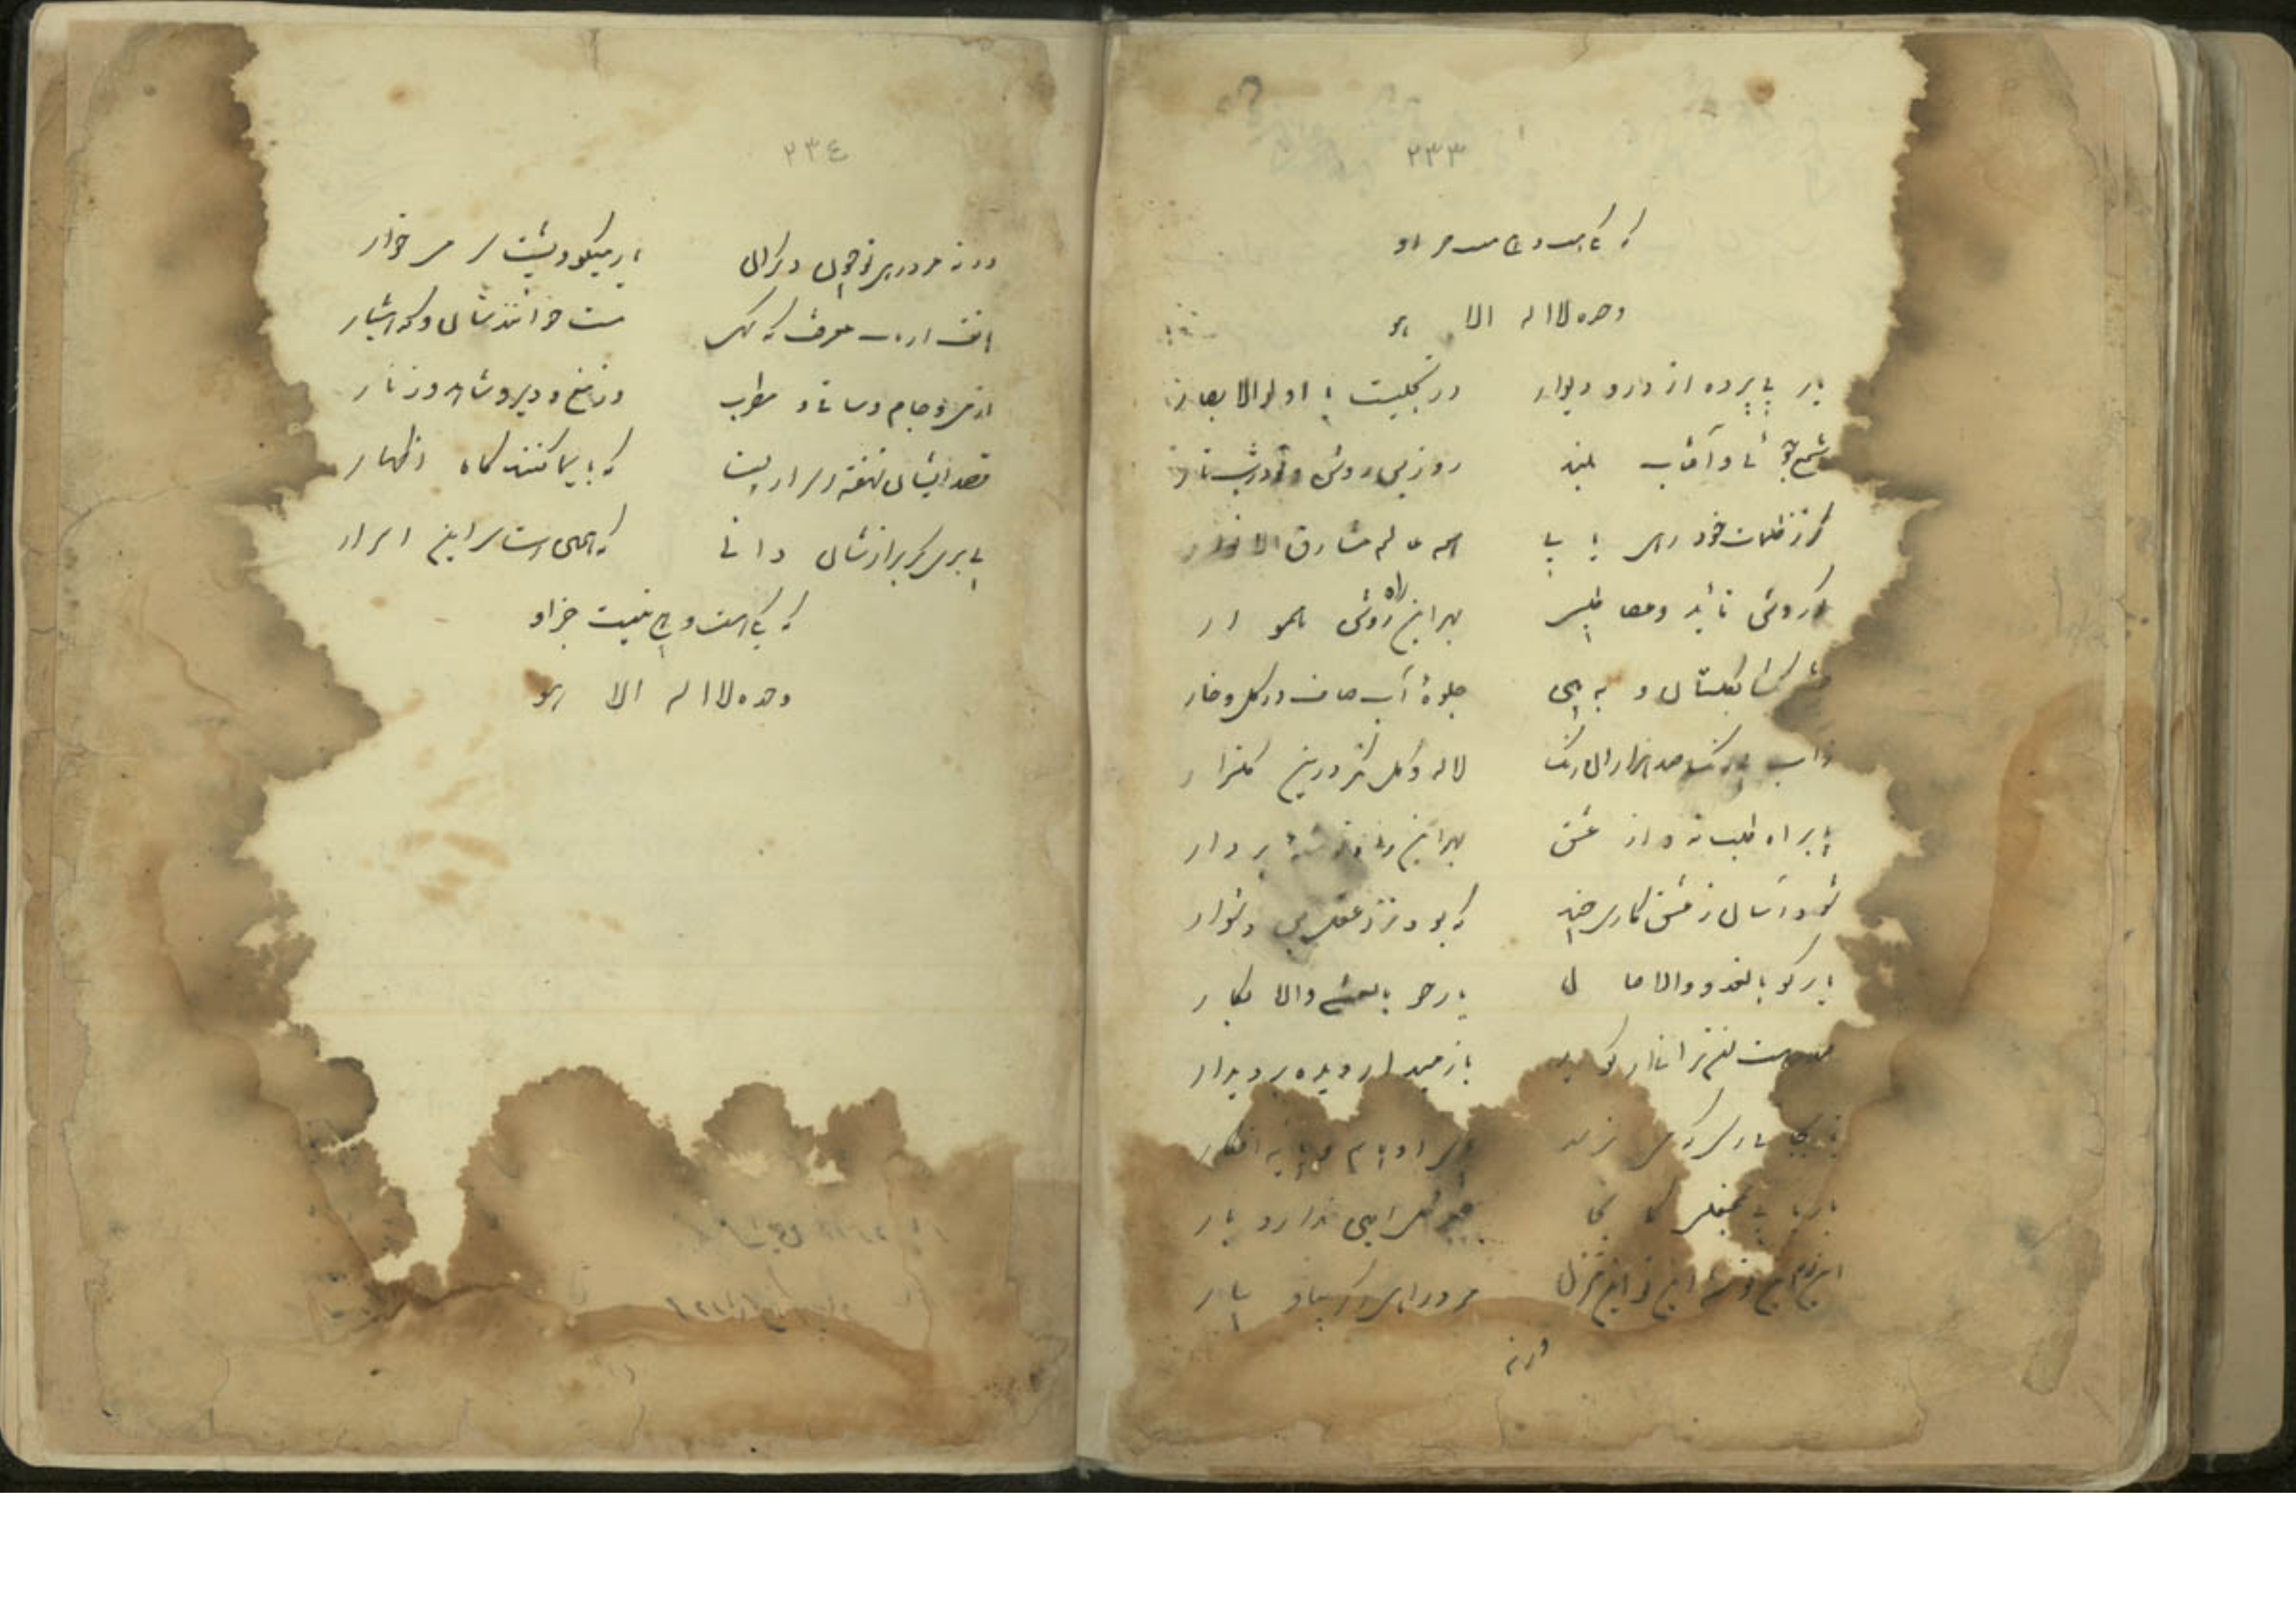 ٢٣٣
که یکی هست و هیچ نیست جز او
وحده لا اله الا هو
یار بی پرده از در و دیوار در تجلیست یا اولو الابصار
شمع جوئی و آفتاب بلند روز بس روشن و تو در شب تار
گر ز ظلمات خود رهی یابی همه عالم مشارق الانوار
کوروش قائد و عصا طلبی بهر این راه روشن هموار
بگلستان و به بین جلوهٔ آب صاف در گل و خار
زآب صد هزاران رنگ لاله و گل نگر درین گلزار
پا براه طلب نه و از عشق بهر این ره بردار
شود آسان ز عشق کاری چند که بود نزد عقل بس دشوار
یار گو بالغدو والاصال یار جو بالعشی والابکار
صد رهت لن ترانی ار گوید باز میدار دیده بر دیدار
تا بجائی رسی که می نرسد پای اوهام و پایه افکار
بار یابی بمحفلی کانجا جبرئیل امین ندارد بار
این ره این توشه این تو این منزل مرد راهی اگر بیا و بیار
ورنه
٢٣٤
ورنه مرد ره چون دگران یار میگو و پشت سر میخار
هاتف ارباب معرفت که گهی مست خوانندشان و گه هشیار
از می و جام و ساقی و مطرب وز مغ و دیر و شاهد و زنار
قصد ایشان نهفته اسراریست که بایما کنند گاه اظهار
پی بری گر برازشان دانی که همین است سر این اسرار
که یکی هست و هیچ نیست جز او
وحده لا اله الا هو